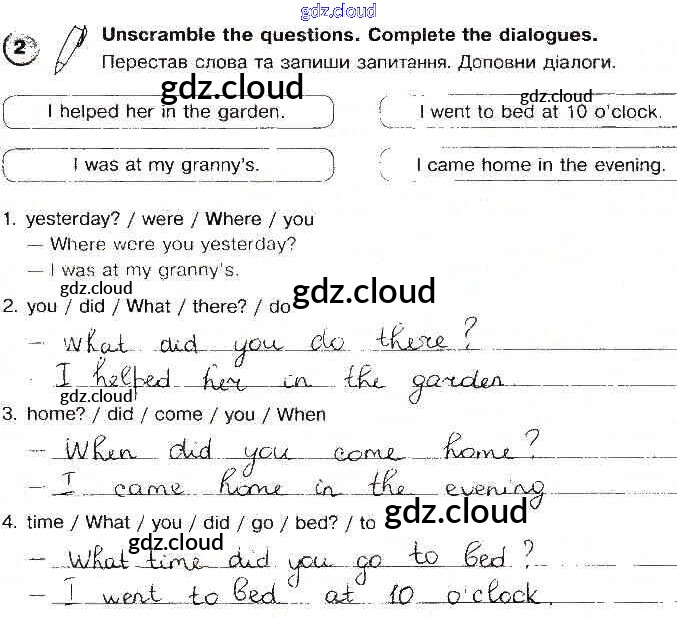 gdz.cloud
2 Unscramble the questions. Complete the dialogues.
Перестав слова та запиши запитання. Доповни діалоги.
gdz.cloud gdz.cloud
I helped her in the garden. I went to bed at 10 o'clock.
I was at my granny's. I came home in the evening.
1. yesterday? / were / Where / you
– Where were you yesterday?
– I was at my granny's.
gdz.cloud gdz.cloud
2. you / did / What / there? / do
– What did you do there?
I helped her in the garden
gdz.cloud
3. home? / did / come / you / When
– When did you come home?
– I came home in the evening
4. time / What / you / did / go / bed? / to gdz.cloud
gdz.cloud
– What time did you go to bed?
– I went to bed at 10 o'clock.